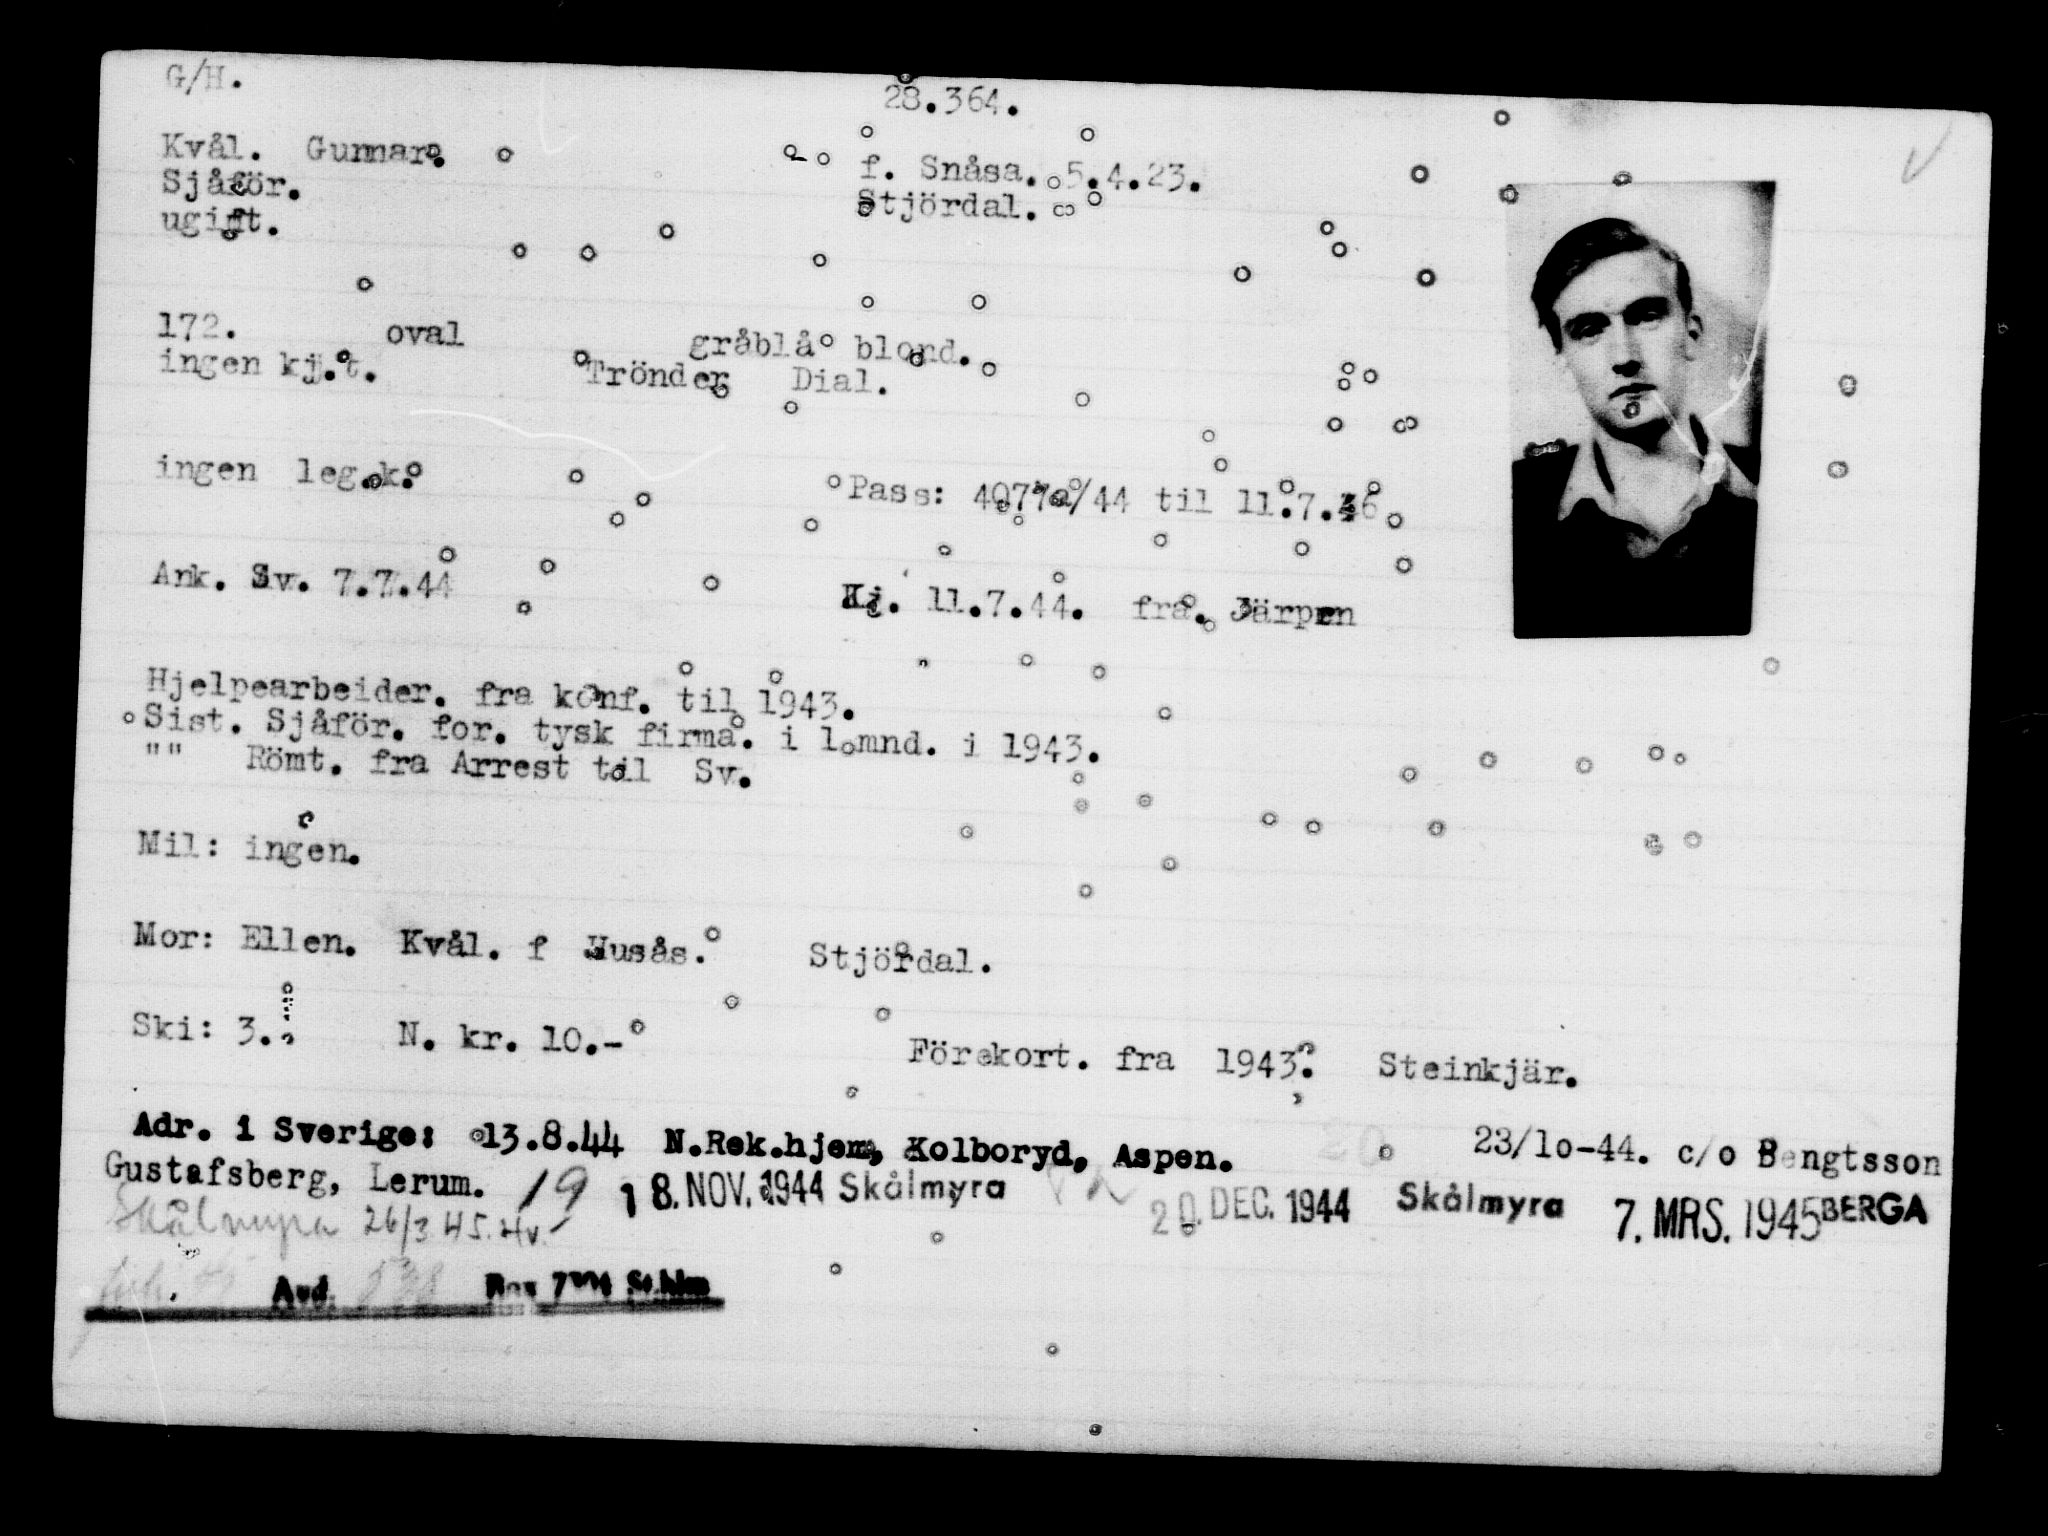 G/H.
28.364.
Kvål. Gunnar. f. Snåsa. 5.4.23.
Sjåför. Stjördal.
ugift.
172. oval gråblå blond.
ingen kj.t. Trönder Dial.
ingen leg.k. Pass: /44 til 11.7.46
Ank. Sv. 7.7.44 Kj. 11.7.44. fra. Järpen
Hjelpearbeider. fra konf. til 1943.
Sist. Sjåför. for. tysk firma. i 1 mnd. i 1943.
"" Römt. fra Arrest til Sv.
Mil: ingen.
Mor: Ellen. Kvål. f Husås. Stjördal.
Ski: 3. N. kr. 10.- Förekort. fra 1943. Steinkjär.
Adr. i Sverige: 13.8.44 N.Rek.hjem, Kolboryd, Aspen. 23/10-44. c/o Bengtsson
Gustafsberg, Lerum. 19 18. NOV. 1944 Skålmyra 20. DEC. 1944 Skålmyra 7. MRS. 1945 BERGA
Skålmyra 26/3 45. Hv.
Avd. 538 Box Sthlm